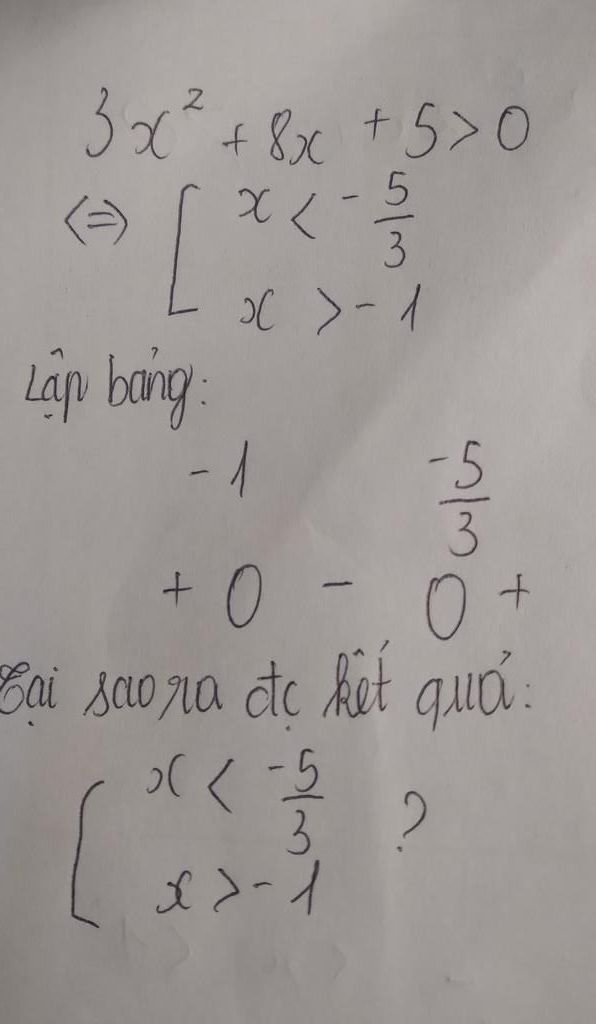 3x² + 8x + 5 > 0
<=> [ x < -5/3
x > -1
Lập bảng:
-1 -5/3
+ 0 - 0 +
Tại sao ra đc kết quả:
[ x < -5/3 ?
x > -1